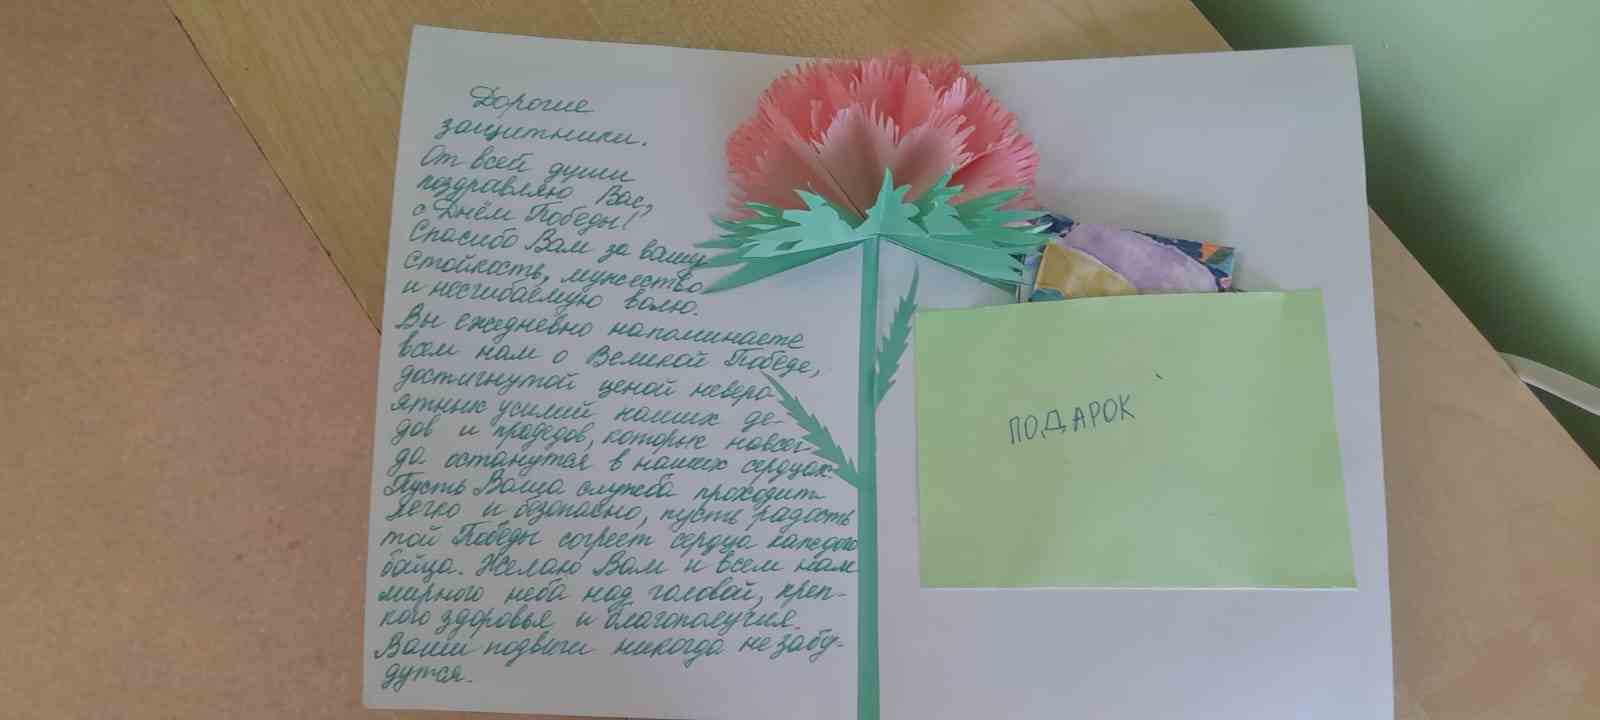 Дорогие
защитники.
От всей души
поздравляю Вас,
с Днём Победы!
Спасибо Вам за вашу
стойкость, мужество
и несгибаемую волю.
Вы ежедневно напоминаете
всем нам о Великой Победе,
достигнутой ценой неверо
ятных усилий наших де-
дов и прадедов, которые навсег-
да останутся в наших сердцах.
Пусть Ваша служба проходит
легко и безопасно, пусть радость
той Победы согреет сердца каждого
бойца. Желаю Вам и всем нам
мирного неба над головой, креп-
кого здоровья и благополучия.
Ваши подвиги никогда не забу-
дутся.
ПОДАРОК